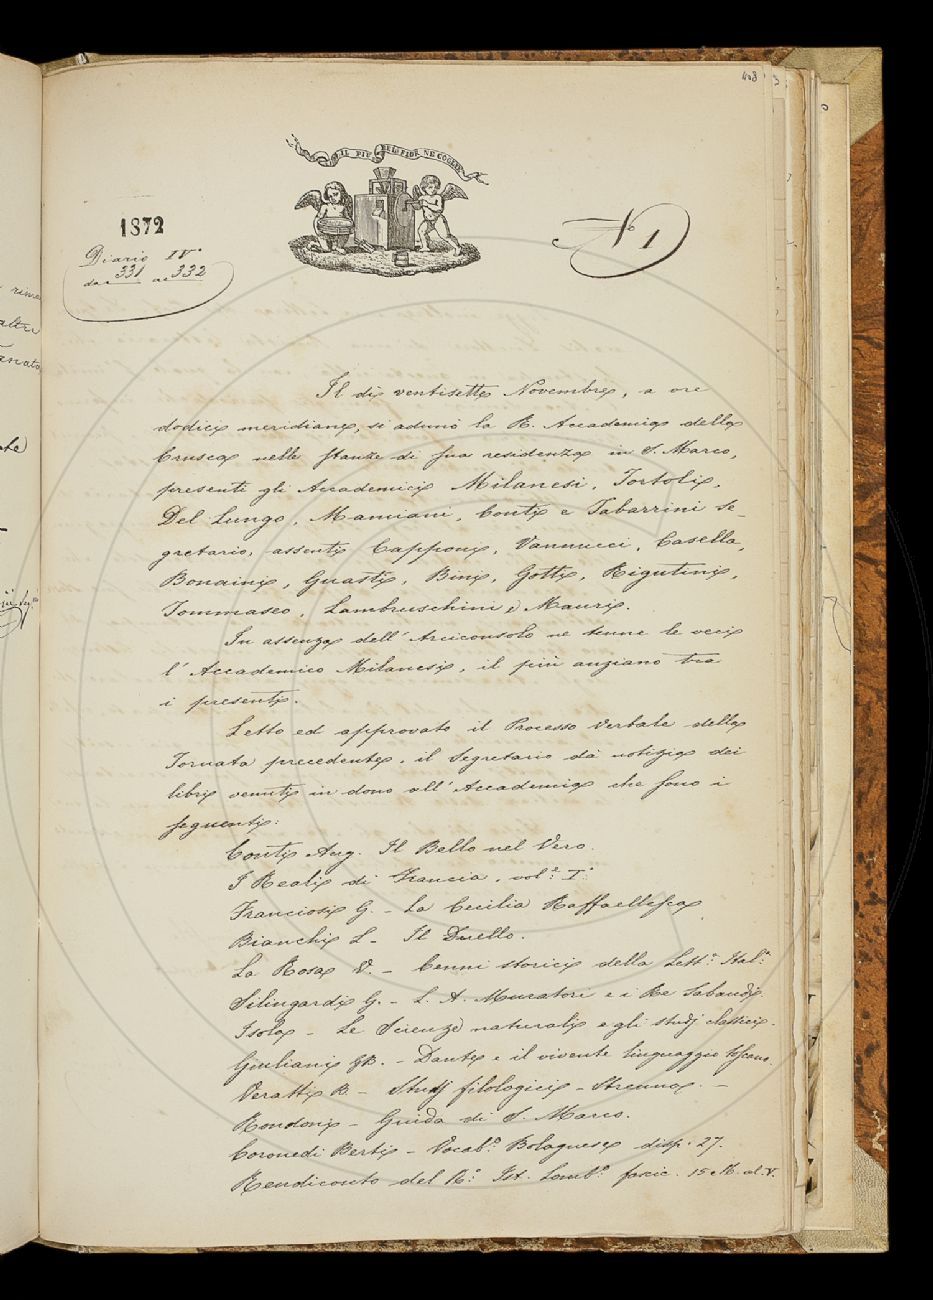 408
IL PIÙ BEL FIOR NE COGLIE
1872
Diario IV°
dar 331 ac 332
N° 1
Il dì ventisette Novembre, a ore
dodici meridiane, si adunò la R. Accademia della
Crusca nelle stanze di sua residenza in S. Marco,
presenti gli Accademici Milanesi, Tortoli,
Del Lungo, Mamiani, Conti e Tabarrini Se-
gretario, assenti Capponi, Vannucci, Casella,
Bonaini, Guasti, Bini, Gotti, Rigutini,
Tommaseo, Lambruschini e Mauri.
In assenza dell'Arciconsolo ne tenne le veci
l'Accademico Milanesi, il più anziano tra
i presenti.
Letto ed approvato il Processo Verbale della
Tornata precedente, il Segretario dà notizia dei
libri venuti in dono all'Accademia che sono i
seguenti:
Conti Aug. Il Bello nel Vero.
I Reali di Francia, vol.e I°:
Franciosi G. - La Cecilia Raffaellesca
Bianchi L. Il Duello.
La Rosa V. - Cenni storici della Lett.a Ital.a
Silingardi G. - L. A. Muratori e i Re Sabaudi.
Isola - Le Scienze naturali e gli studj classici.
Giuliani GB. - Dante e il vivente linguaggio toscano.
Veratti B. - Studj filologici - Strenna. -
Rondoni - Guida di S. Marco.
Coronedi Berti - Vocab.o Bolognese disp. 27.
Rendiconto del R.o Ist. Lomb.o fascic. 15 M. al V.
rime
altri